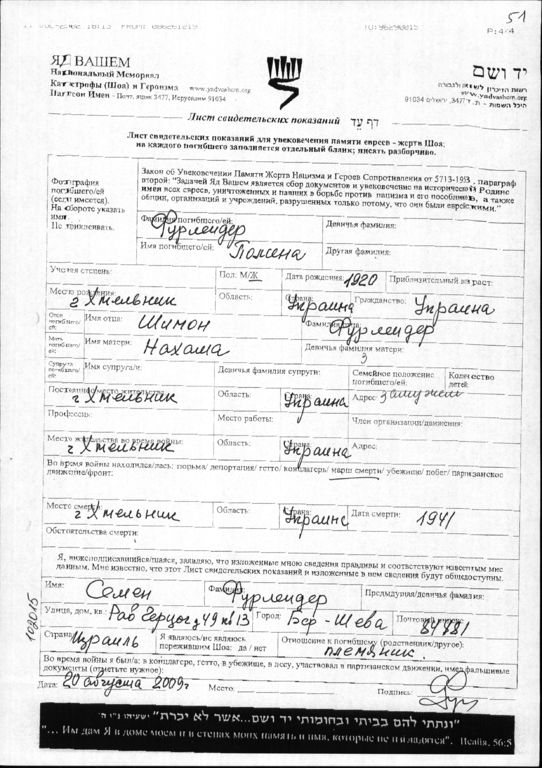 51
P:4/4
ЯД ВАШЕМ
Национальный Мемориал
Катастрофы (Шоа) и Героизма
www.yadvashem.org
Почт. ящик 3477, Иерусалим 91034
יד ושם
רשות הזיכרון לשואה ולגבורה
www.yadvashem.org
היכל השמות - ת.ד. 3477, ירושלים 91034
Лист свидетельских показаний דף עד
Лист свидетельских показаний для увековечения памяти евреев - жертв Шоа;
на каждого погибшего заполняется отдельный бланк; писать разборчиво.
Фотография погибшего/ей (если имеется). На обороте указать имя. Не приклеивать.
Закон об Увековечении Памяти Жертв Нацизма и Героев Сопротивления от 5713-1953, параграф
второй: "Задачей Яд Вашем является сбор документов и увековечение на исторической Родине
имен всех евреев, уничтоженных и павших в борьбе против нацизма и его пособников, а также
общин, организаций и учреждений, разрушенных только потому, что они были еврейскими."
Фамилия погибшего/ей: Фурлендер Девичья фамилия:
Имя погибшего/ей: Другая фамилия:
Ученая степень: Пол: М/Ж Дата рождения: 1920 Приблизительный возраст:
Место рождения: г Хмельник Область: Страна: Украина Гражданство: Украина
Отец погибшего/ей: Имя отца: Шимон Фамилия отца: Фурлендер
Мать погибшего/ей: Имя матери: Нахама Девичья фамилия матери:
Супруг/а погибшего/ей: Имя супруга/и: Девичья фамилия супруги: Семейное положение погибшего/ей: Количество детей:
Постоянное место жительства: г Хмельник Область: Страна: Украина Адрес: замужем
Профессия: Место работы: Член организации/движения:
Место жительства во время войны: г Хмельник Область: Страна: Украина Адрес:
Во время войны находился/лась: тюрьма/ депортация/ гетто/ концлагерь/ марш смерти/ убежище/ побег/ партизанское
движение/фронт:
Место смерти: г Хмельник Область: Страна: Украина Дата смерти: 1941
Обстоятельства смерти:
Я, нижеподписавшийся/шаяся, заявляю, что изложенные мною сведения правдивы и соответствуют известным мне
данным. Мне известно, что этот Лист свидетельских показаний и изложенные в нем сведения будут общедоступны.
Имя: Семен Фамилия: Фурлендер Предыдущая/девичья фамилия:
Улица, дом, кв.: Рав Герцог д 49 кв 13 Город: Бер-Шева Почтовый
Страна: Израиль Я являюсь/не являюсь пережившим Шоа: да / нет Отношение к погибшему (родственник/другое): племянник.
Во время войны я был/а: в концлагере, гетто, в убежище, в лесу, участвовал в партизанском движении, имел фальшивые
документы (отметьте нужное):
Дата: 20 августа 2009г Место: Подпись:
"ונתתי להם בביתי ובחומותי יד ושם...אשר לא יכרת" ישעיהו נ"ו ה'
"... Им дам Я в доме моем и в стенах моих память и имя, которые не изгладятся". Исайя, 56:5